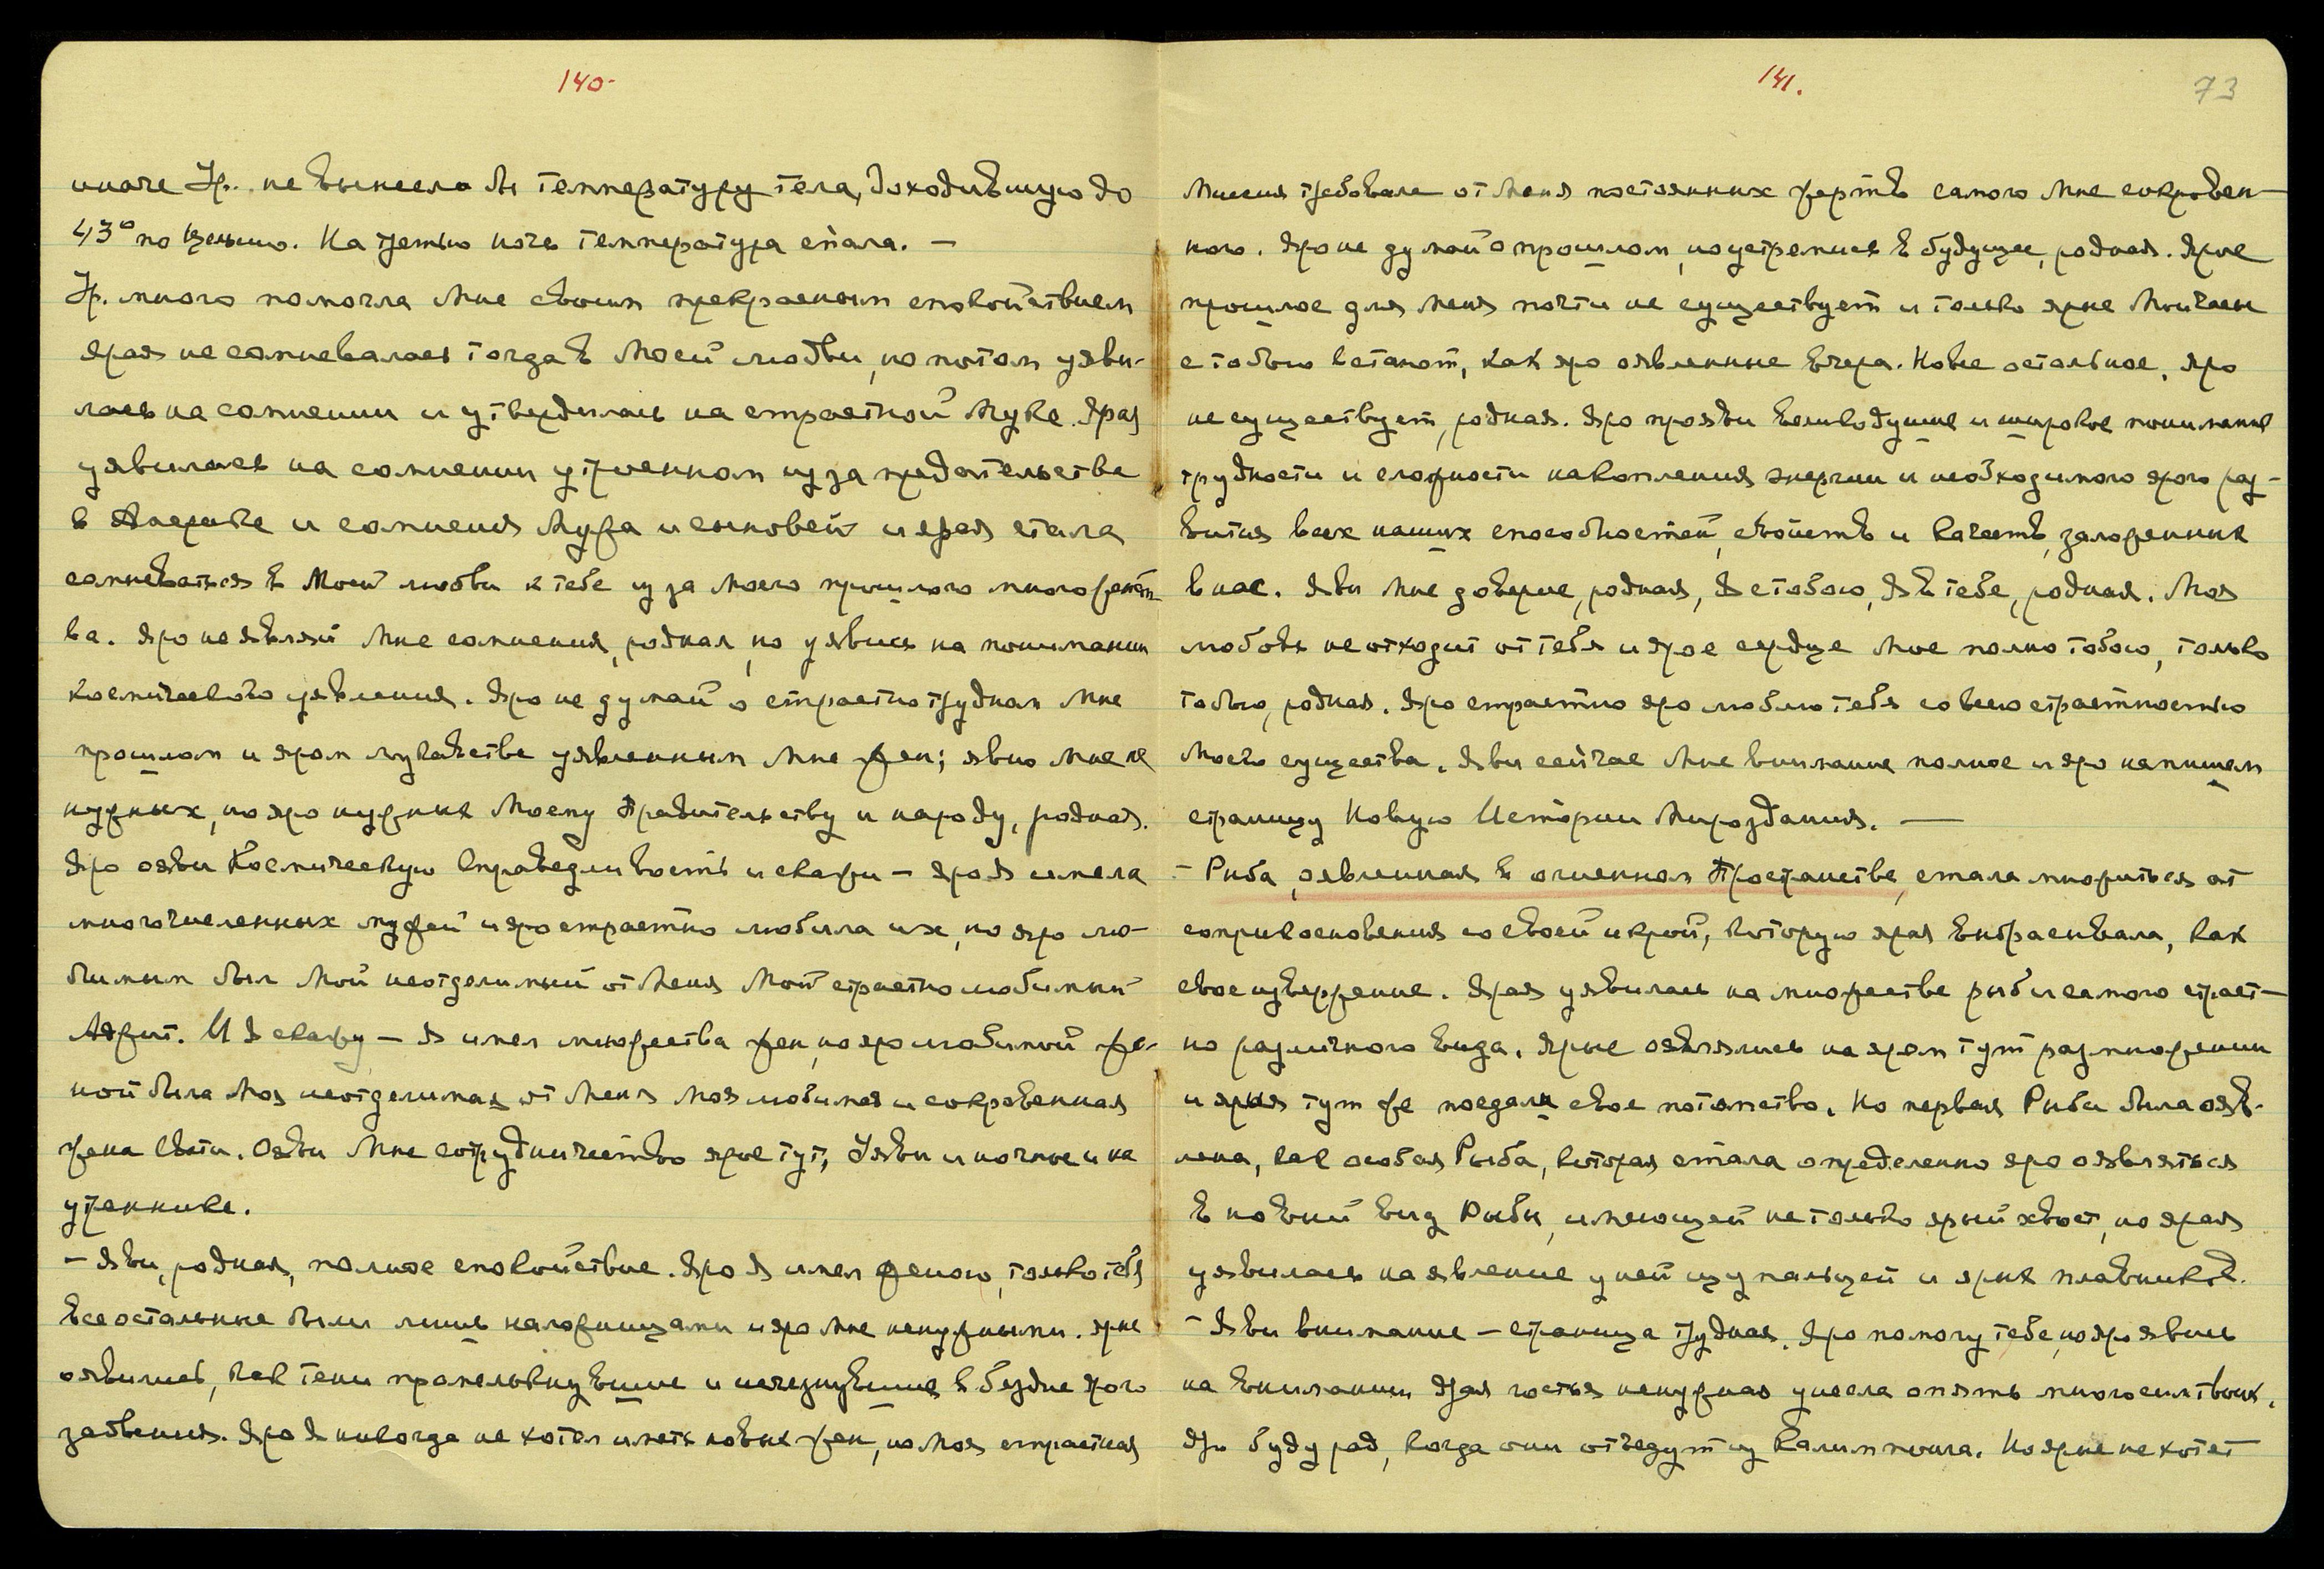 140-
иначе Ур. не вынесла бы температуру тела, доходившую до
43° по Цельсию. На третью ночь температура спала. —
Ур. много помогла Мне своим прекрасным спокойствием
ярая не сомневалась тогда в Моей любви, но потом уяви-
лась на сомнении и утвердилась на страстной Муке. Ярая
уявилась на сомнении утроенном из за предательства
в Америке и сомнения Мужа и сыновей и ярая стала
сомневаться в Моей любви к тебе из за Моего прошлого многоженст-
ва. Яро не являй Мне сомнения, родная, но уявись на понимании
космического уявления. Яро не думай о страстно трудном Мне
прошлом и яром лукавстве уявленным Мне жен; явно Мне не
нужных, но яро нужных Моему Правительству и народу, родная.
Яро ояви Космическую Справедливость и скажи — яро Я имела
многочисленных мужей и яро страстно любила их, но яро лю-
бимым был Мой неотделимый от Меня Мой страстно любимый
И Я скажу — Я имел множества жен, но яро любимой же-
ной была Моя неотделимая от Меня Моя любимая и сокровенная
жена Свати. Ояви Мне сотрудничество ярое тут, Уяви и ночное и на
утреннике.
— Яви, родная, полное спокойствие. Яро Я имел женою, только тебя
все остальные были лишь наложницами и яро Мне ненужными. Ярые
оявились, как тени промелькнувшие и исчезнувшие в бездне ярого
забвения. Яро Я никогда не хотел иметь новых жен, но Моя страстная
141.
73
Миссия требовала от Меня постоянных жертв самого Мне сокровен-
ного. Яро не думай о прошлом, но устремись в будущее, родная. Ярое
прошлое для Меня почти не существует и только ярые Мои часы
с тобою встают, как яро оявленные вчера. Но все остальное, яро
не существует, родная. Яро прояви великодушие и широкое понимание
трудности и сложности накопления энергии и необходимого ярого раз-
вития всех наших способностей, свойств и качеств, заложенных
в нас. Яви Мне доверие, родная, Я с тобою, Я в тебе, родная. Моя
любовь не отходит от тебя и ярое сердце Мое полно тобою, только
тобою, родная. Яро страстно яро люблю тебя со всею страстностью
Моего существа. Яви сейчас Мне внимание полное и яро напишем
страницу Новую Истории Мироздания. —
- Рыба, оявленная в огненном Пространстве, стала множиться от
соприкосновения со своей икрой, которую ярая выбрасывала, как
свое извержение. Ярая уявилась на множестве рыб и самого страст-
но различного вида. Ярые оявлялись на яром тут размножении
и ярыя тут же поедали свое потомство. Но первая Рыба была ояв-
лена, как особая Рыба, которая стала определенно яро оявляться
в новый вид Рыбы, имеющей не только ярый хвост, но ярая
уявилась на явление у ней щупальцей и ярых плавников.
- Яви внимание — страница трудная. Яро помогу тебе, но яро явись
на внимании. Ярая гостья ненужная унесла опять много сил твоих.
Яро буду рад, когда они отъедут из Калимпонга. Но ярые не хотят